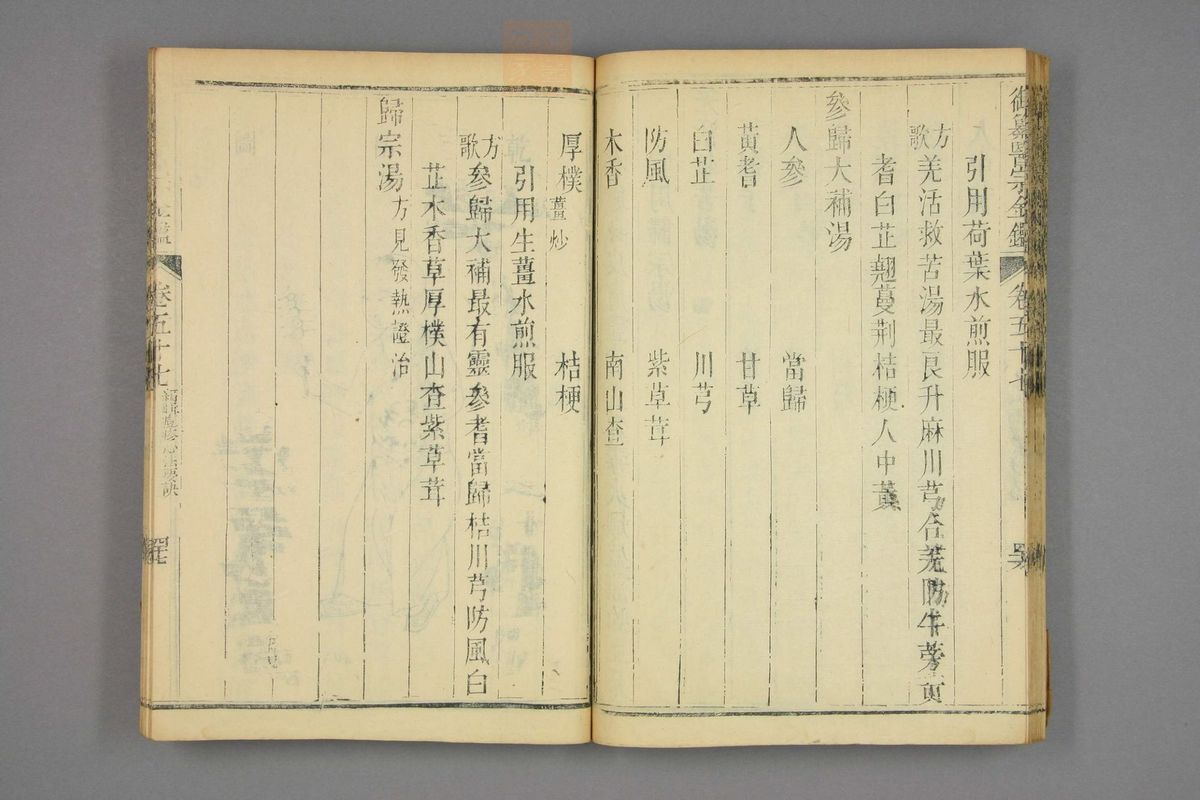 御纂醫宗金鑑 卷五十七
引用荷葉水煎服
方歌 羌活救苦湯最良升麻川芎合羌防牛蒡黄
耆白芷翹蔓荆桔梗人中黃
參歸大補湯
人參 當歸
黄耆 甘草
白芷 川芎
防風 紫草茸
木香 南山查
厚樸薑炒 桔梗
引用生薑水煎服
方歌 參歸大補最有靈參耆當歸桔川芎防風白
芷木香草厚樸山查紫草茸
歸宗湯方見發熱證治
金鑑 卷五十七